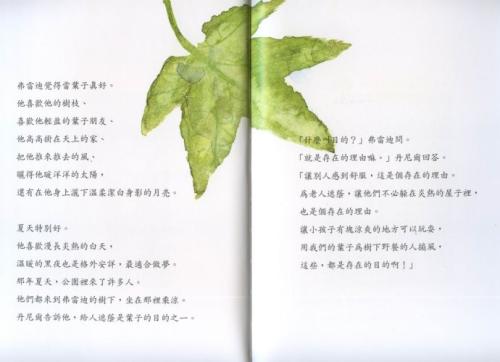 弗雷迪覺得當葉子真好。
他喜歡他的樹枝、
喜歡他輕盈的葉子朋友、
他高高掛在天上的家、
把他推來推去的風、
曬得他暖洋洋的太陽,
還有在他身上灑下溫柔潔白身影的月亮。
夏天特別好。
他喜歡漫長炎熱的白天,
溫暖的黑夜也是格外安詳,最適合做夢。
那年夏天,公園裡來了許多人。
他們都來到弗雷迪的樹下,坐在那裡乘涼。
丹尼爾告訴他,給人遮蔭是葉子的目的之一。
「什麼叫目的?」弗雷迪問。
「就是存在的理由嘛。」丹尼爾回答。
「讓別人感到舒服,這是個存在的理由。
為老人遮蔭,讓他們不必躲在炎熱的屋子裡,
也是個存在的理由。
讓小孩子有塊涼爽的地方可以玩耍,
用我們的葉子為樹下野餐的人搧風,
這些,都是存在的目的啊!」